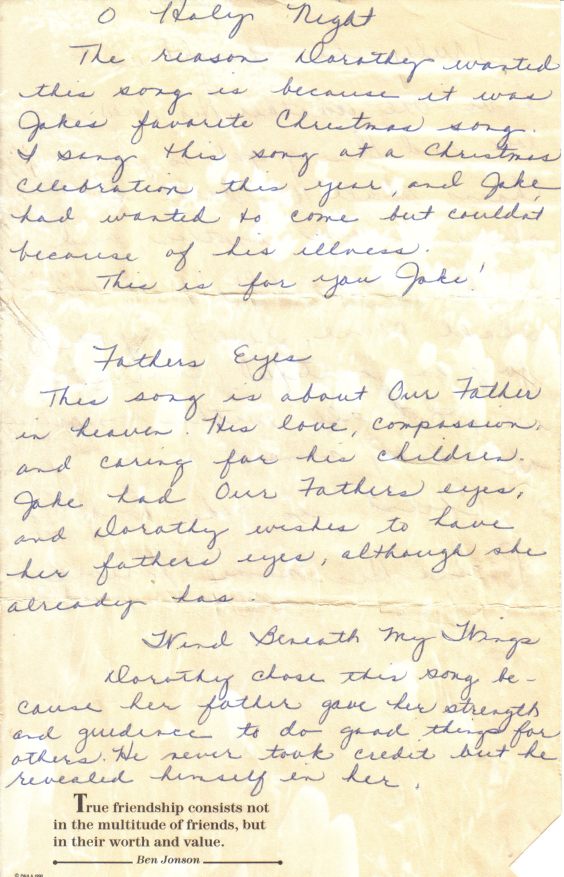 O Holy Night
The reason Dorothy wanted
this song is because it was
Jake's favorite Christmas song.
I sang this song at a Christmas
celebration this year, and Jake
had wanted to come but couldn't
because of his illness.
This is for you Jake!
Fathers Eyes
This song is about Our Father
in heaven. His love, compassion,
and caring for his children.
Jake had Our Fathers eyes,
and Dorothy wishes to have
her fathers eyes, although she
already has.
Wind Beneath My Wings
Dorothy chose this song be-
cause her father gave her strength
and guidence to do good things for
others. He never took credit but he
revealed himself in her.
True friendship consists not
in the multitude of friends, but
in their worth and value.
Ben Jonson